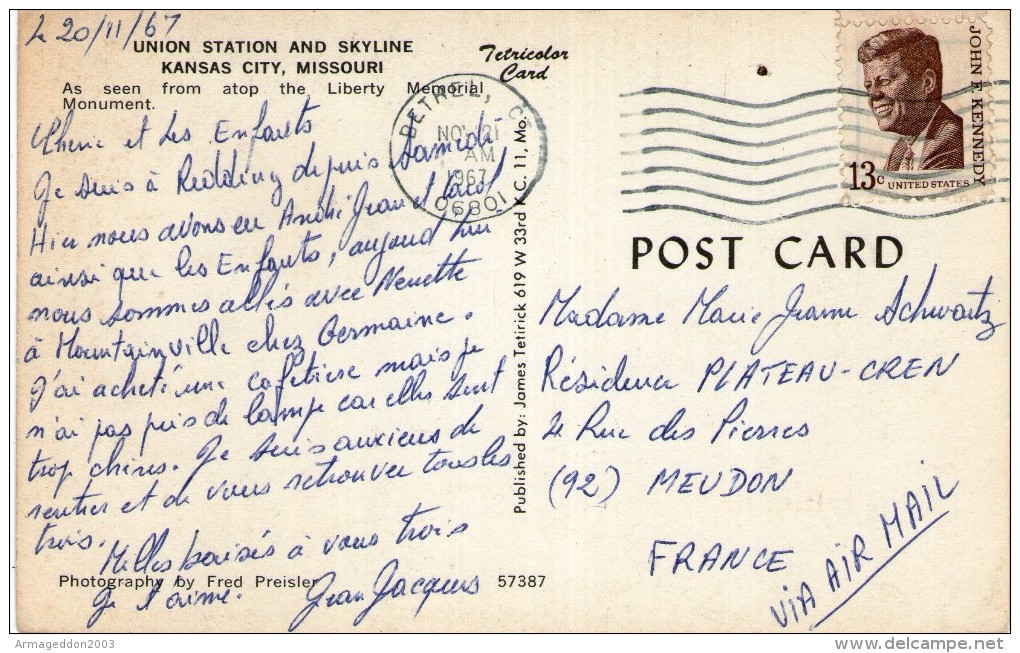 Le 20/11/67
UNION STATION AND SKYLINE
KANSAS CITY, MISSOURI
As seen from atop the Liberty Memorial
Monument.
Tetricolor
Card
Cherie et Les Enfants
Je suis à Redding depuis Samedi
Hier nous avons eu André Jean et
ainsi que les Enfants, aujourd'hui
nous sommes allés avec Nenette
à Mountainville chez Germaine.
J'ai acheté une cafetière mais je
n'ai pas pris de lampe car elles sont
trop chères. Je suis anxieux de
rentrer et de vous retrouver tous les
trois.
Milles baisés à vous trois
Je t'aime. Jean Jacques
Photography by Fred Preisler
57387
Published by: James Tetirick 619 W 33rd K.C. 11, Mo.
BETHEL, CT
NOV 21
AM
1967
06801
JOHN F. KENNEDY
13c UNITED STATES
POST CARD
Madame Marie Jeanne Schwartz
Résidence PLATEAU-CREN
4 Rue des Pierres
(92) MEUDON
FRANCE
VIA AIR MAIL
Armageddon2003
delcampe.net